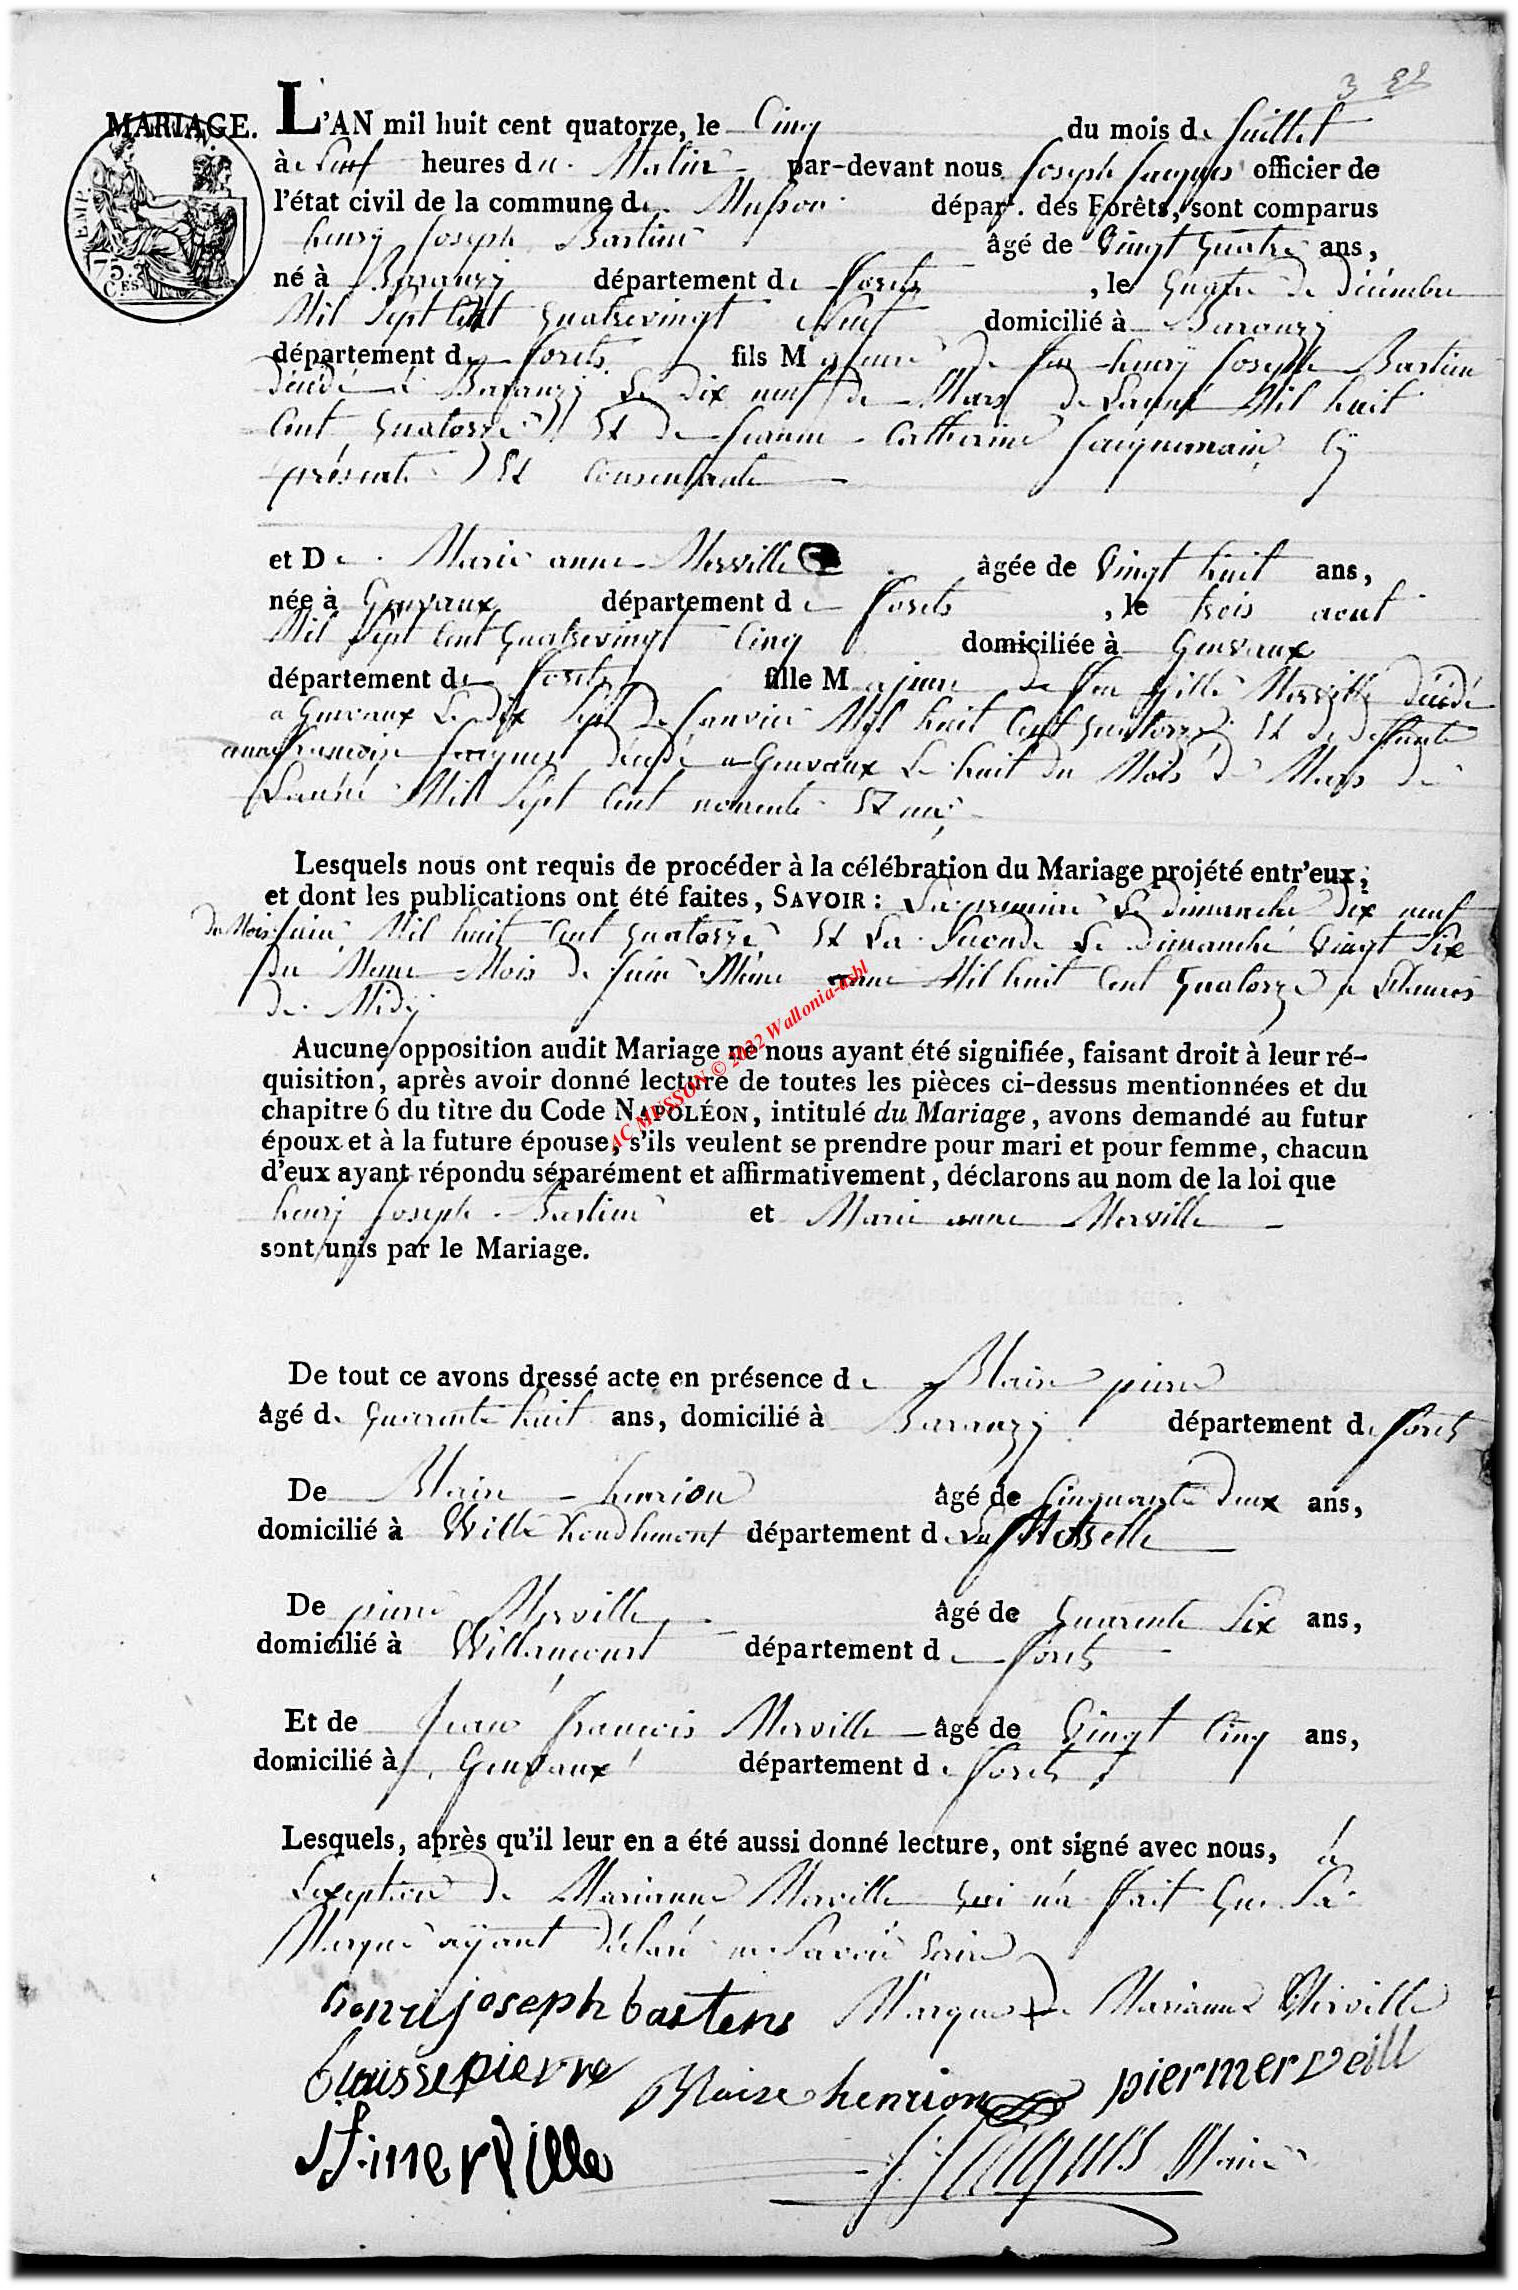 3 22
MARIAGE. L'AN mil huit cent quatorze, le Cinq du mois de Juillet
à Neuf heures du Matin par-devant nous Joseph Jacques officier de
l'état civil de la commune de Musson dépar. des Forêts, sont comparus
henry Joseph Bastin âgé de Vingt quatre ans,
né à Baranzy département de Forets , le quatre de décembre
Mil Sept Cent quatrevingt Neuf domicilié à Baranzy
département de Forets fils Majeur de feu henry Joseph Bastin
décédé à Baranzy Le dix neuf de Mars de Lanné Mil huit
Cent quatorze Et de Jeanne Catherine Jacquemain Cy
présente Et Consentante
et De Marie anne Merville âgée de Vingt huit ans,
née à Genvaux département de Forets , le trois aout
Mil Sept Cent quatrevingt Cinq domiciliée à Genvaux
département de Forets fille Majeure de feu Gille Merville décédé
a Genvaux Le dix Sept de Janvier Mil huit Cent quatorze Et de deffunte
anne francoise Jacques décédé a Genvaux Le huit du Mois de Mars de
Lanné Mil Sept Cent nonente Et un,
Lesquels nous ont requis de procéder à la célébration du Mariage projété entr'eux,
et dont les publications ont été faites, SAVOIR : La premiere Le dimanche dix neuf
Du Mois Juin Mil huit Cent quatorze Et La Seconde Le Dimanche Vingt Six
du Meme Mois de Juin Même anne Mil huit Cent quatorze a Lheures
de Midy
Aucune opposition audit Mariage ne nous ayant été signifiée, faisant droit à leur ré-
quisition, après avoir donné lecture de toutes les pièces ci-dessus mentionnées et du
chapitre 6 du titre du Code NAPOLÉON, intitulé du Mariage, avons demandé au futur
époux et à la future épouse, s'ils veulent se prendre pour mari et pour femme, chacun
d'eux ayant répondu séparément et affirmativement, déclarons au nom de la loi que
henry Joseph Bastin et Marie anne Merville
sont unis par le Mariage.
De tout ce avons dressé acte en présence de Blaise pierre
âgé de quarente huit ans, domicilié à Baranzy département de Forets
De Blaise henrion âgé de Cinquante deux ans,
domicilié à Ville houdlemont département de La Moselle
De pierre Merville âgé de quarente Six ans,
domicilié à Willancourt département de Forets
Et de Jean François Merville âgé de Vingt Cinq ans,
domicilié à Genvaux département de Forets
Lesquels, après qu'il leur en a été aussi donné lecture, ont signé avec nous, à
Lexeption de Marianne Merville qui n'a fait que Sa
Marque ayant déclaré ne Savoir Ecrire
henri joseph bastens Marque + de Marianne Merville
blaisse pierre Blaise henrion pier merveill
J f. merville J. Jacques Maire
EMP.
75.
C.ES
AC MUSSON © 2022 Wallonia-asbl